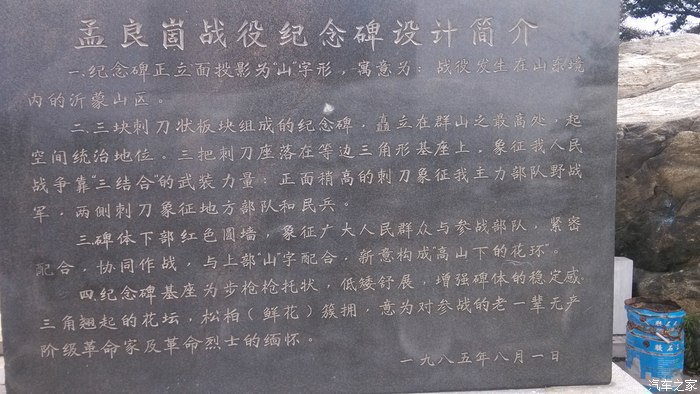 孟良崮战役纪念碑设计简介
一.纪念碑正立面投影为"山"字形，寓意为：战役发生在山东境
内的沂蒙山区。
二.三块刺刀状板块组成的纪念碑，矗立在群山之最高处，起
空间统治地位。三把刺刀座落在等边三角形基座上，象征我人民
战争靠"三结合"的武装力量：正面稍高的刺刀象征我主力部队野战
军，两侧刺刀象征地方部队和民兵。
三.碑体下部红色圆墙，象征广大人民群众与参战部队，紧密
配合，协同作战，与上部"山"字配合，新意构成"高山下的花环"。
四.纪念碑基座为步枪枪托状，低矮舒展，增强碑体的稳定感.
三角翘起的花坛，松柏（鲜花）簇拥，意为对参战的老一辈无产
阶级革命家及革命烈士的缅怀。
一九八五年八月一日
汽车之家